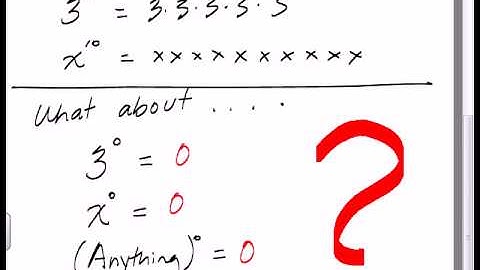 3 = 3·3·3·3·3
x¹⁰ = x x x x x x x x x x
What about . . . .
3⁰ = 0
x⁰ = 0
(Anything)⁰ = 0
?